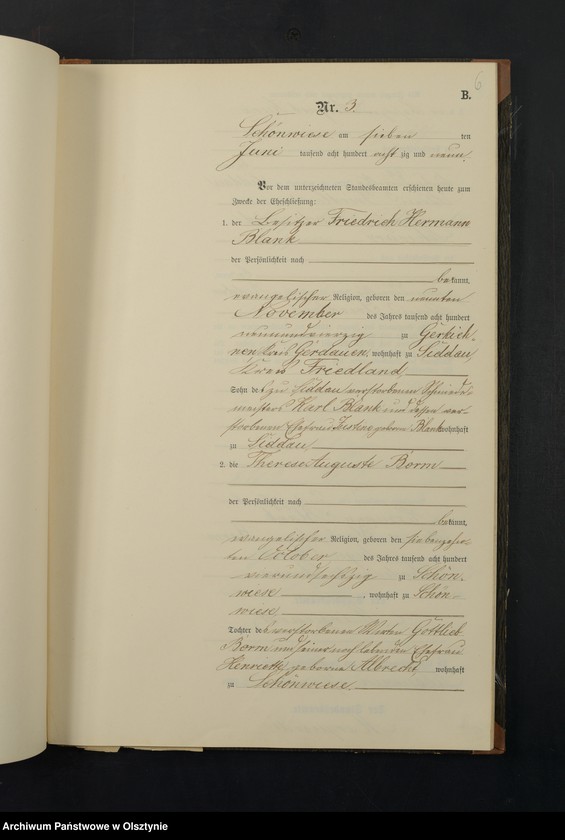 6
B.
Nr. 3.
Schönwiese am sieben ten
Juni tausend acht hundert acht zig und neun.
Vor dem unterzeichneten Standesbeamten erschienen heute zum
Zwecke der Eheschließung:
1. der Besitzer Friedrich Hermann
Blank
der Persönlichkeit nach
bekannt,
evangelischer Religion, geboren den neunten
November des Jahres tausend acht hundert
neunundvierzig zu
nen Kreis Gerdauen, wohnhaft zu Siddau
Kreis Friedland
Sohn des zu Siddau verstorbenen Schmiede-
meisters Karl Blank und dessen ver-
storbenen Ehefrau Justine geborn Blank wohnhaft
zu Siddau
2. die Therese Auguste Borm
der Persönlichkeit nach
bekannt,
evangelischer Religion, geboren den siebenzehn-
ten October des Jahres tausend acht hundert
vierundsechszig zu Schön-
wiese, wohnhaft zu Schön-
wiese
Tochter des verstorbenen Gottlieb
Borm und seiner noch lebenden Ehefrau
Henriette geborne Albrecht, wohnhaft
zu Schönwiese.
Archiwum Państwowe w Olsztynie